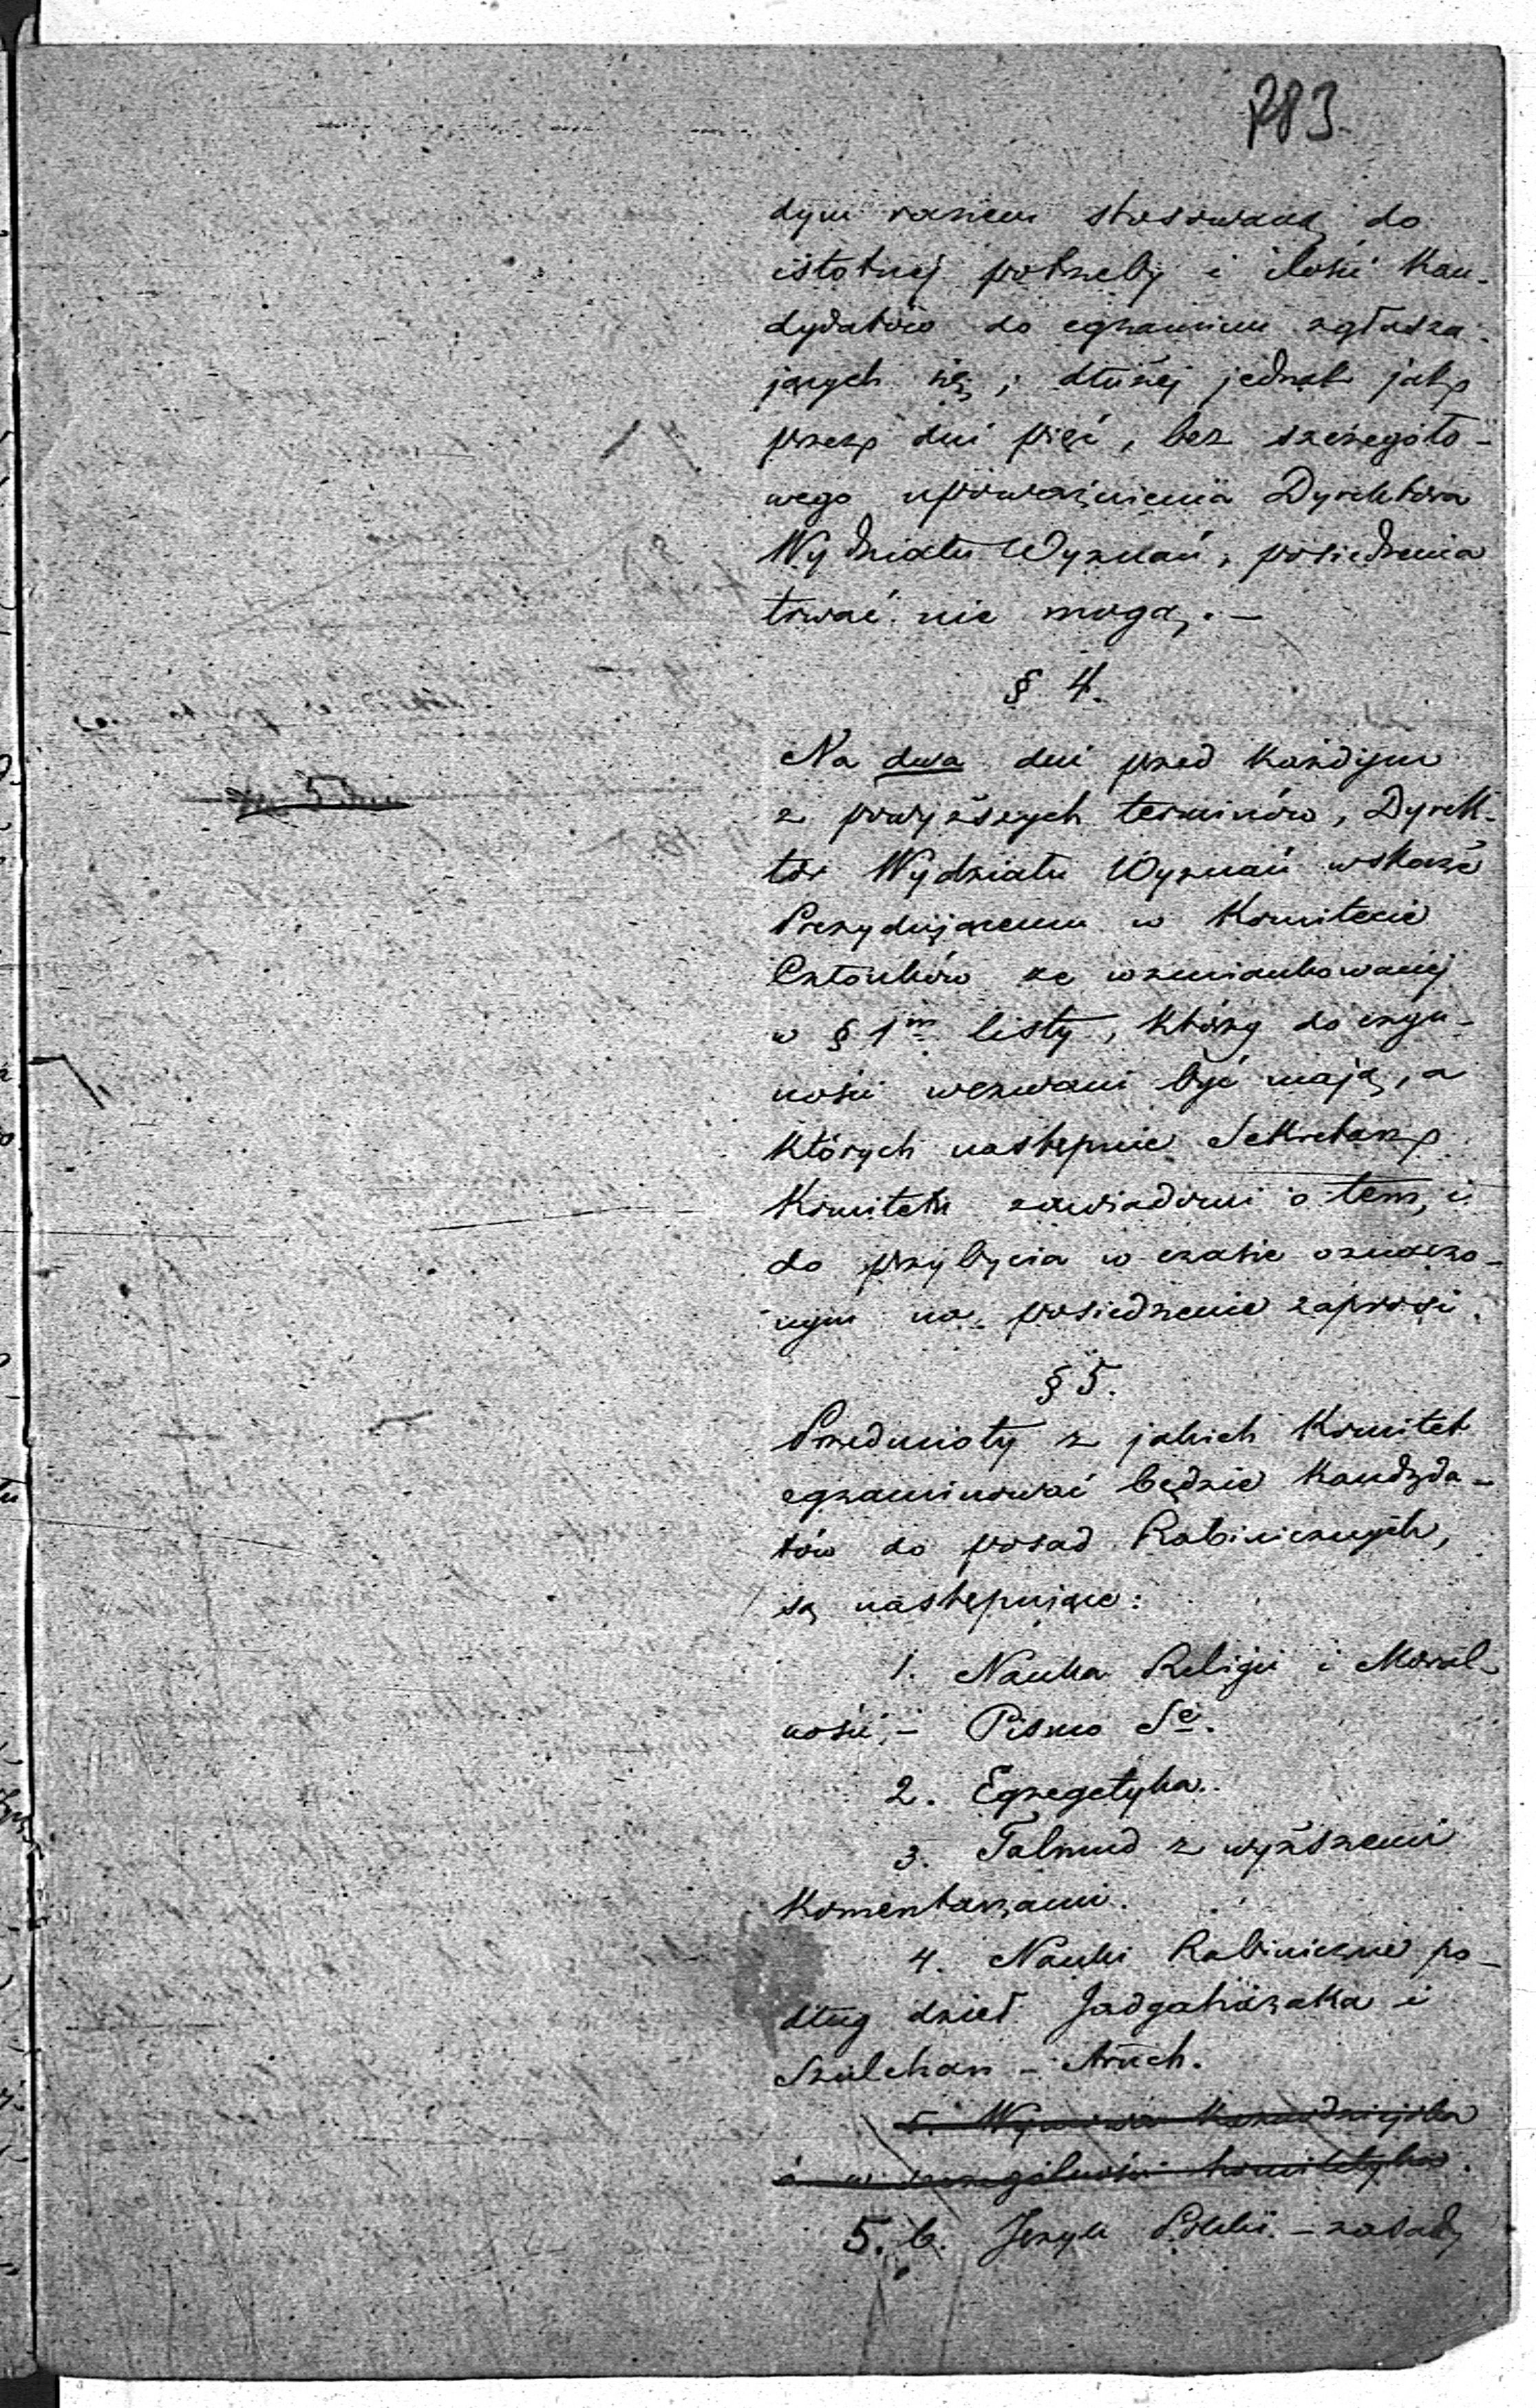 783.
dym razem stosowaną do
istotnej potrzeby i ilości Kan-
dydatów do egzaminu zgłasza-
jących się; dłużej jednak jak
przez dni pięć, bez szczegóło-
wego upoważnienia Dyrektora
Wydziału Wyznań, posiedzenia
trwać nie mogą. —
§ 4.
Na dwa dni przed każdym
z powyższych terminów, Dyrek-
tor Wydziału Wyznań wskaże
Prezydującemu w Komitecie
Członków ze wzmiankowanej
w § 1m listy, którzy do czyn-
ności wezwani być mają, a
których następnie Sekretarz
Komitetu zawiadomi o tem, i
do przybycia w czasie oznaczo-
nym na posiedzenie zaprosi.
§ 5.
Przedmioty z jakich Komitet
egzaminować będzie Kandyda-
tów do posad Rabinicznych,
są następujące:
1. Nauka Religii i Moral-
ności, – Pismo Se.
2. Egzegetyka.
3. Talmud z wyższemi
Komentarzami.
4. Nauki Rabiniczne po-
dług dzieł Jadgahazaka i
Szulchan – Aruch.
5. Wymowa Kaznodziejska
a w szczególności homiletyka.
5. 6. Język Polski. – zasady